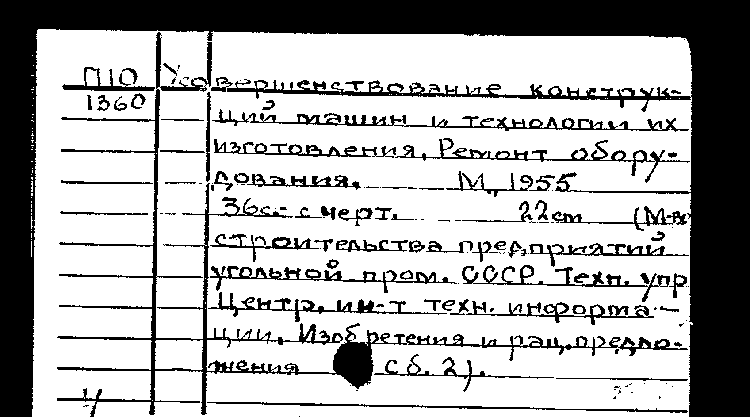 П10 Усовершенствование конструк-
1360 ций машин и технологии их
изготовления. Ремонт обору-
дования. М., 1955
36с. с черт. 22см (М-во
строительства предприятий
угольной пром. СССР. Техн. упр
Центр. ин-т техн. информа-
ции. Изобретения и рац. предло-
жения сб. 2).